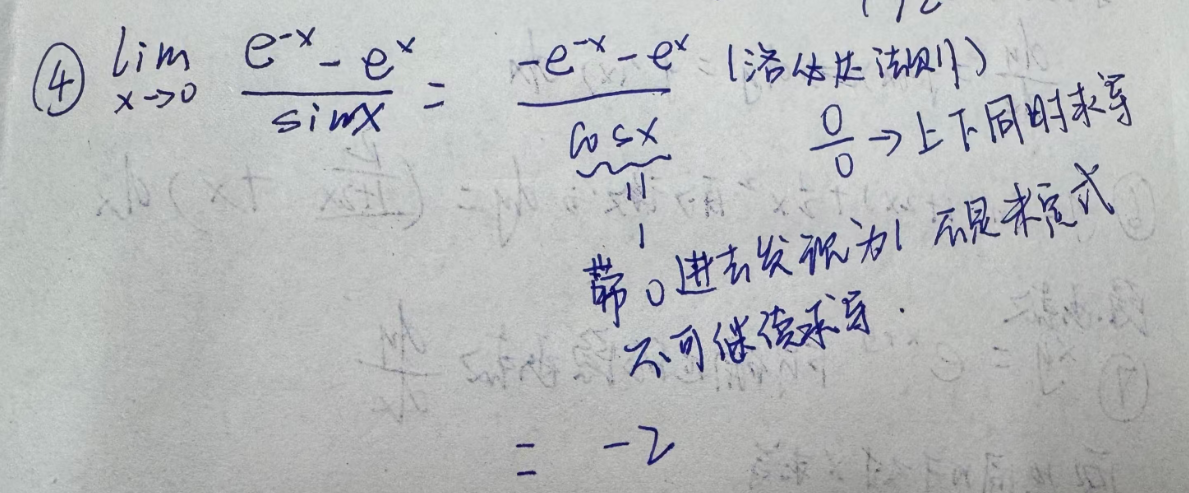 ④ lim x→0 (e^-x - e^x)/sinx = (-e^-x - e^x)/cosx (洛必达法则)
0/0 → 上下同时求导
= 1
带0进去发现为1 不是未定式
不可继续求导.
= -2